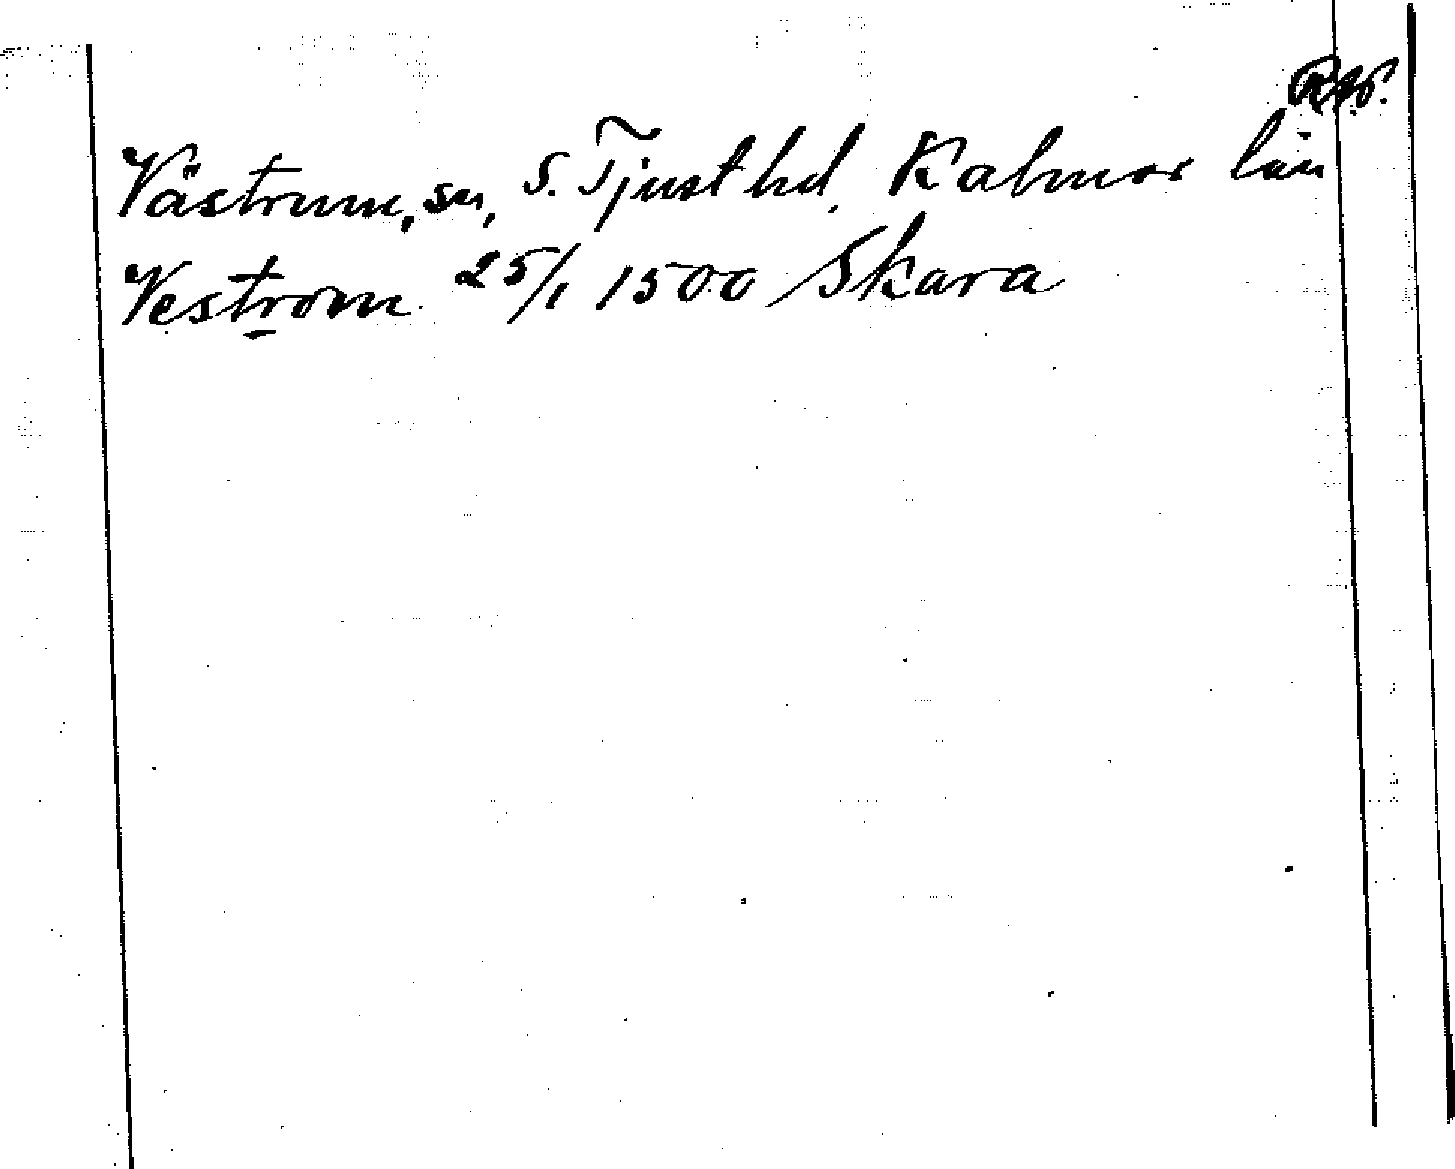 Rep.
Västrum, sn, S. Tjust hd. Kalmar län
Vestrom 25/1 1500 Skara